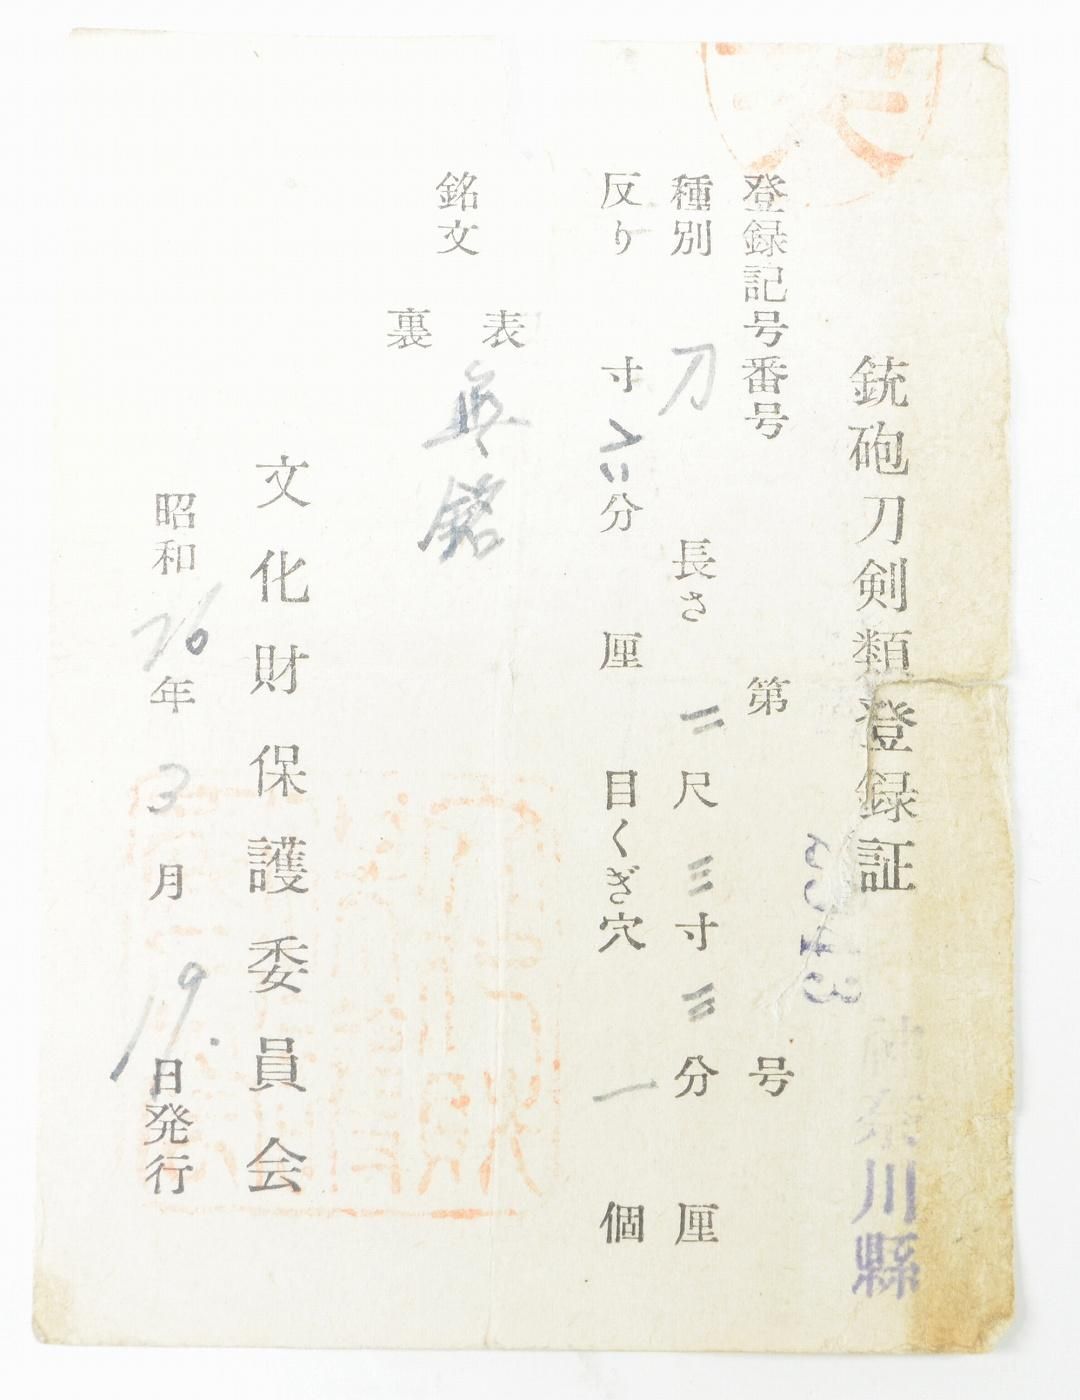 銃砲刀剣類登録証
神奈川縣
登録記号番号 第 号
種別 刀 長さ 二尺三寸三分 厘
反り 寸六分 厘 目くぎ穴 一個
銘文
表 無銘
裏
文化財保護委員会
昭和26年3月19日発行